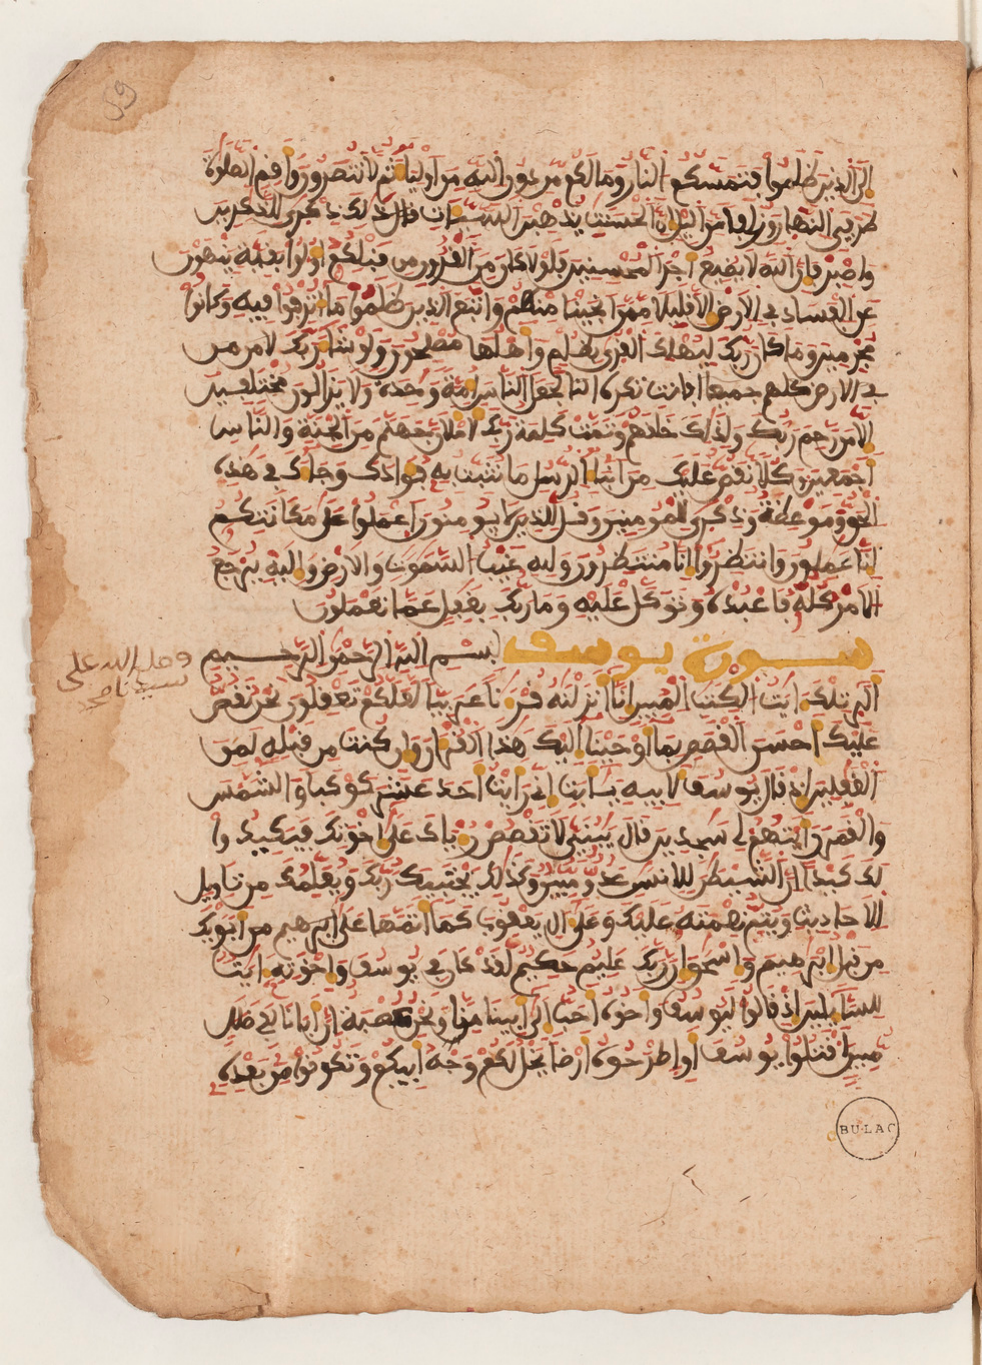 59
الى الذين ظلموا فتمسكم النار وما لكم من دون الله من اولياء ثم لا تنصرون واقم الصلوة
طرفي النهار وزلفا من اليل ان الحسنت يذهبن السيـات ذلك ذكرى للذكرين
واصبر فان الله لا يضيع اجر المحسنين فلولا كان من القرون من قبلكم اولوا بقية ينهون
عن الفساد في الارض الا قليلا ممن انجينا منهم واتبع الذين ظلموا ما اترفوا فيه وكانوا
مجرمين وما كان ربك ليهلك القرى بظلم واهلها مصلحون ولو شا ربك لامن من
في الارض كلهم جميعا افانت تكره النا لجعل الناس امة وحدة ولا يزالون مختلفين
الا من رحم ربك ولذلك خلقهم وتمت كلمة ربك لاملان جهنم من الجنة والناس
اجمعين وكلا نقص عليك من انباء الرسل ما نثبت به فوادك وجاك في هذه
الحق وموعظة وذكرى للمومنين وقل للذين لا يومنون اعملوا على مكانتكم
انا عملون وانتظروا انا منتظرون ولله غيب السموت والارض واليه يرجع
الامر كله فاعبده وتوكل عليه وما ربك بغفل عما تعملون
سورة يوسف بسم الله الرحمن الرحيم
وصلى الله على
سيدنا محمد
الر تلك ايت الكتب المبين انا انزلنه قرنا عربيا لعلكم تعقلون نحن نقص
عليك احسن القصص بما اوحينا اليك هذا القران وان كنت من قبله لمن
الغفلين اذ قال يوسف لابيه يابت اني رايت احد عشر كوكبا والشمس
والقمر رايتهم لي سجدين قال يبني لا تقصص رياك على اخوتك فيكيدوا
لك كيدا ان الشيطن للانسن عدو مبين وكذلك يجتبيك ربك ويعلمك من تاويل
الاحاديث ويتم نعمته عليك وعلى ال يعقوب كما اتمها على ابويك
من قبل ابرهيم واسحق ان ربك عليم حكيم لقد كان في يوسف واخوته ايت
للسايلين اذ قالوا ليوسف واخوه احب الى ابينا منا ونحن عصبة ان ابانا لفي ضلل
مبين اقتلوا يوسف او اطرحوه ارضا يخل لكم وجه ابيكم وتكونوا من بعده
BULAC